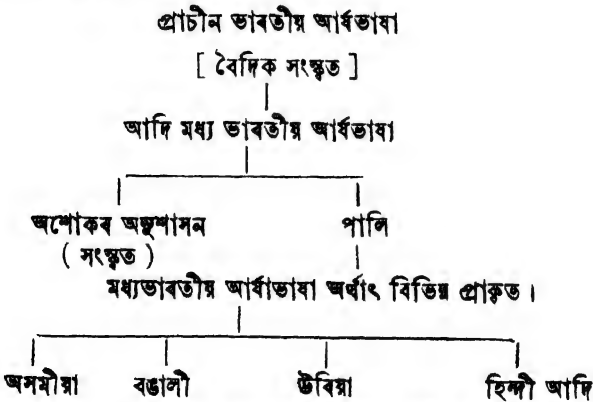 প্ৰাচীন ভাৰতীয় আৰ্যভাষা
[ বৈদিক সংস্কৃত ]
আদি মধ্য ভাৰতীয় আৰ্যভাষা
অশোকৰ অনুশাসন পালি
( সংস্কৃত )
মধ্যভাৰতীয় আৰ্যাভাষা অৰ্থাৎ বিভিন্ন প্ৰাকৃত ।
অসমীয়া বঙালী উৰিয়া হিন্দী আদি